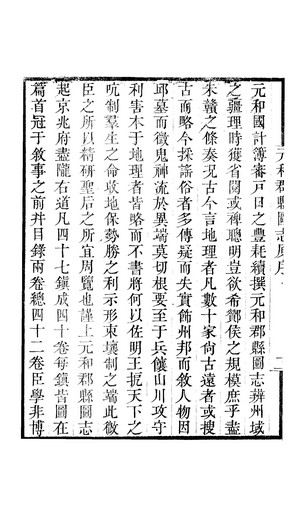 元和郡縣圖志原序
元和國計簿審戸口之豐耗續撰元和郡縣圖志辨州域
之疆理時獲省閱或裨聰明豈欲希酇侯之規模庶乎盡
朱贛之條奏況古今言地理者凡數十家尚古遠者或搜
古而略今採謠俗者多傳疑而失實飾州邦而敘人物因
邱墓而徵鬼神流於異端莫切根要至于兵饟山川攻守
利害本于地理者皆略而不書將何以佐明王扼天下之
吭制羣生之命收地保勢勝之利示形束壤制之端此微
臣之所以精研聖后之所宜周覽也謹上元和郡縣圖志
起京兆府盡隴右道凡四十七鎮成四十卷每鎮皆圖在
篇首冠于敘事之前并目錄兩卷總四十二卷臣學非博